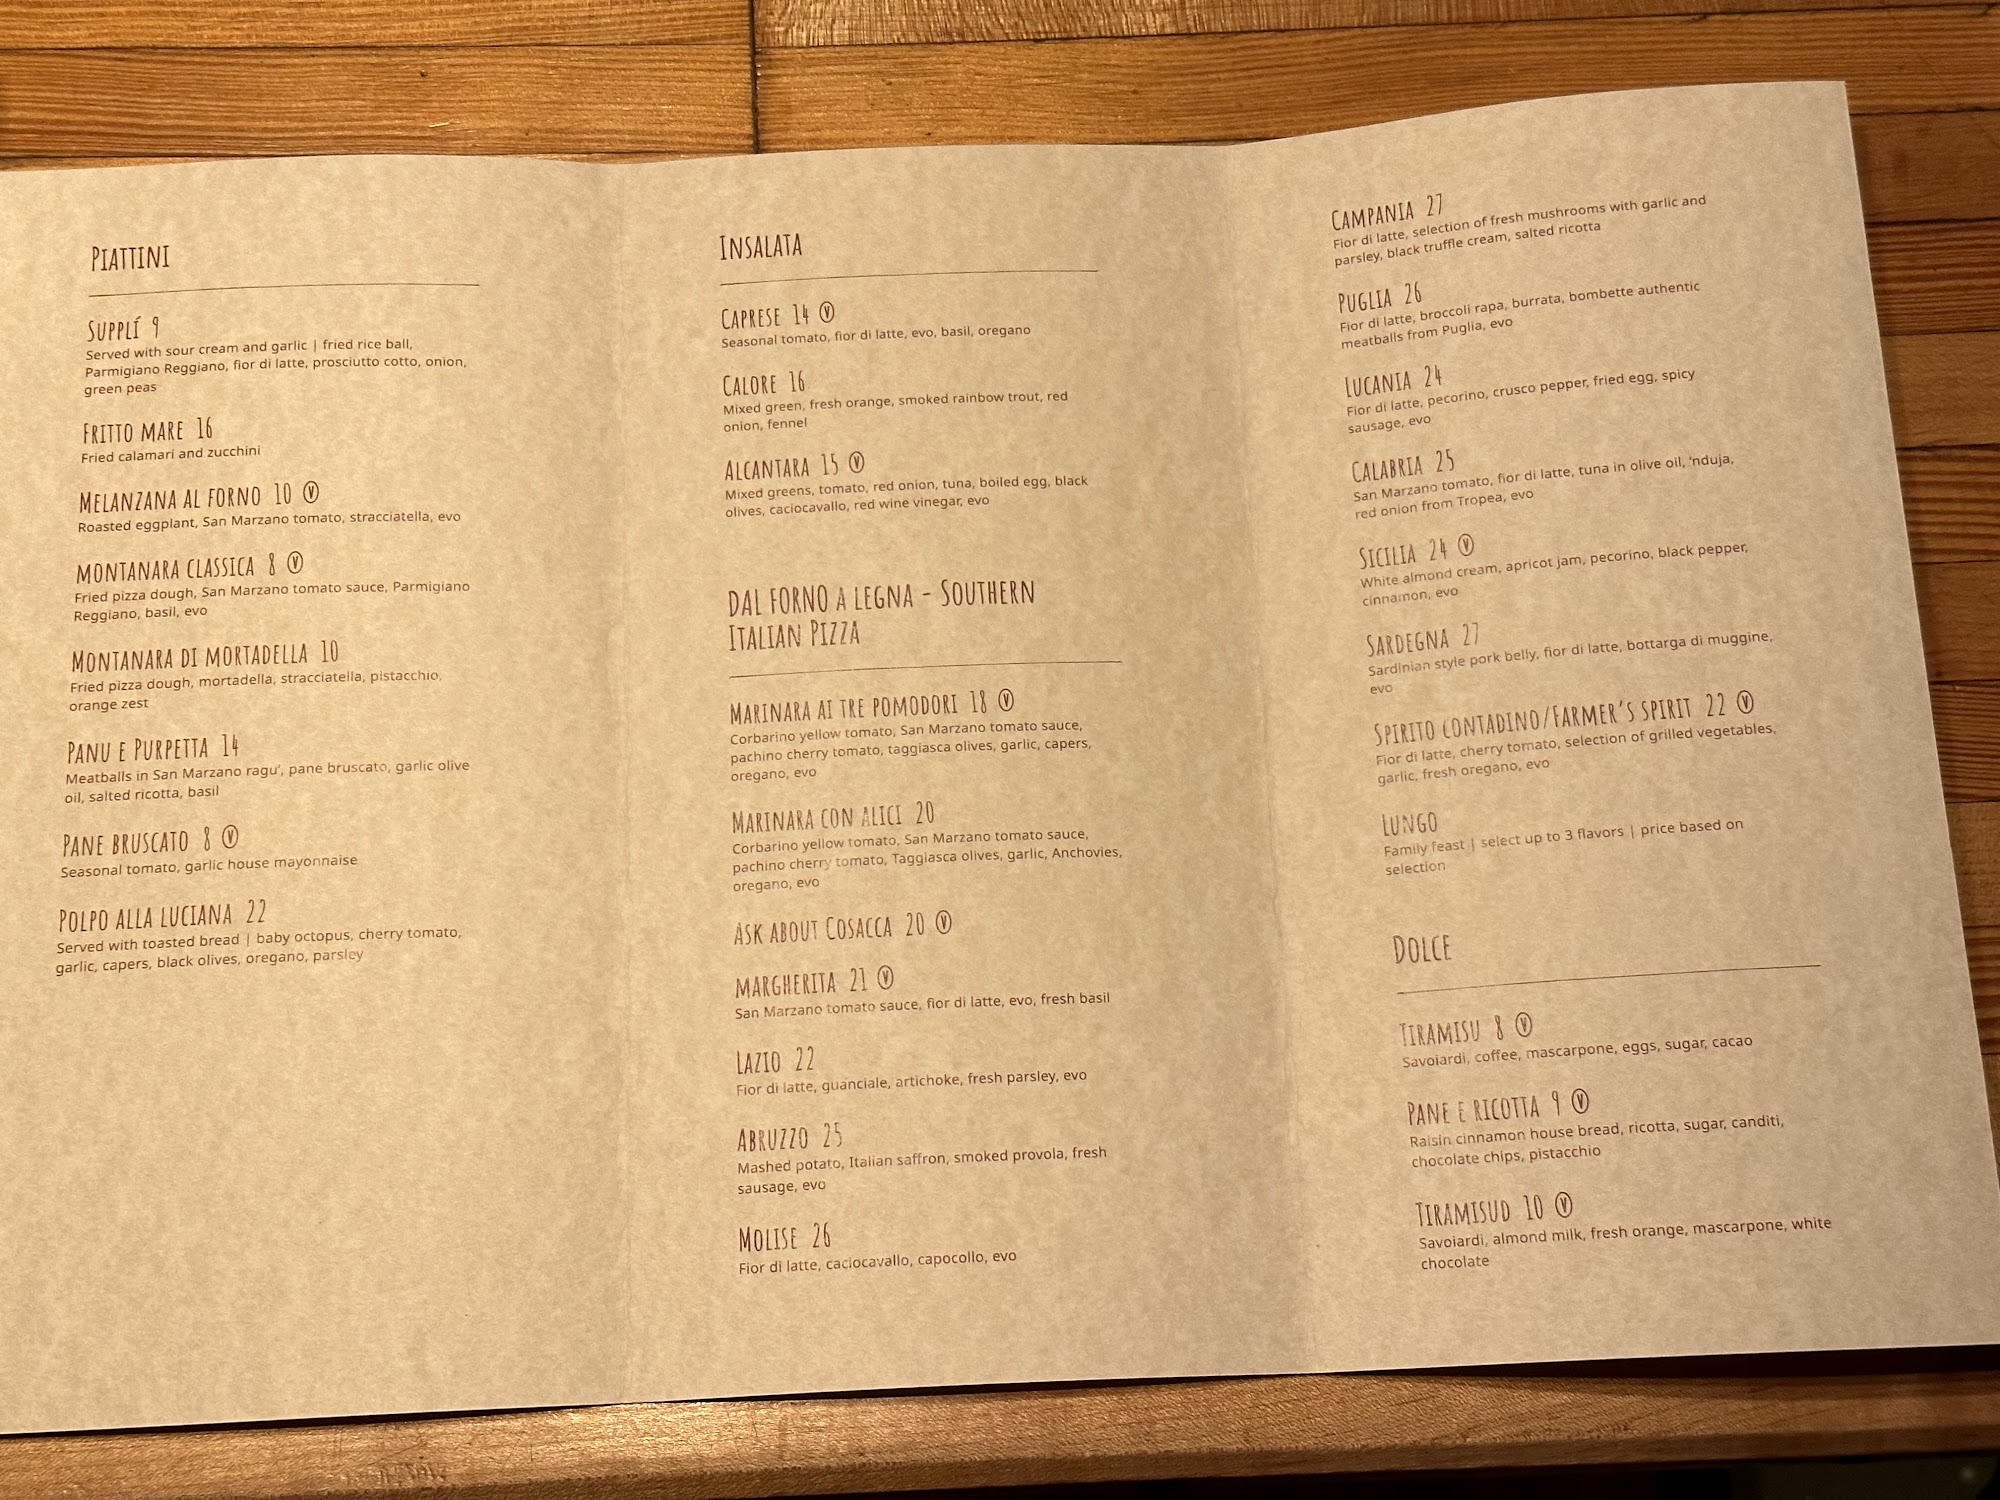 Piattini
Supplí 9
Served with sour cream and garlic | fried rice ball,
Parmigiano Reggiano, fior di latte, prosciutto cotto, onion,
green peas
Fritto mare 16
Fried calamari and zucchini
Melanzana al forno 10 Ⓥ
Roasted eggplant, San Marzano tomato, stracciatella, evo
montanara classica 8 Ⓥ
Fried pizza dough, San Marzano tomato sauce, Parmigiano
Reggiano, basil, evo
Montanara di mortadella 10
Fried pizza dough, mortadella, stracciatella, pistacchio,
orange zest
Panu e Purpetta 14
Meatballs in San Marzano ragu', pane bruscato, garlic olive
oil, salted ricotta, basil
Pane bruscato 8 Ⓥ
Seasonal tomato, garlic house mayonnaise
Polpo alla luciana 22
Served with toasted bread | baby octopus, cherry tomato,
garlic, capers, black olives, oregano, parsley
Insalata
Caprese 14 Ⓥ
Seasonal tomato, fior di latte, evo, basil, oregano
Calore 16
Mixed green, fresh orange, smoked rainbow trout, red
onion, fennel
Alcantara 15 Ⓥ
Mixed greens, tomato, red onion, tuna, boiled egg, black
olives, caciocavallo, red wine vinegar, evo
dal forno a legna - Southern
Italian Pizza
Marinara ai tre pomodori 18 Ⓥ
Corbarino yellow tomato, San Marzano tomato sauce,
pachino cherry tomato, taggiasca olives, garlic, capers,
oregano, evo
Marinara con alici 20
Corbarino yellow tomato, San Marzano tomato sauce,
pachino cherry tomato, Taggiasca olives, garlic, Anchovies,
oregano, evo
Ask about Cosacca 20 Ⓥ
margherita 21 Ⓥ
San Marzano tomato sauce, fior di latte, evo, fresh basil
Lazio 22
Fior di latte, guanciale, artichoke, fresh parsley, evo
Abruzzo 25
Mashed potato, Italian saffron, smoked provola, fresh
sausage, evo
Molise 26
Fior di latte, caciocavallo, capocollo, evo
Campania 27
Fior di latte, selection of fresh mushrooms with garlic and
parsley, black truffle cream, salted ricotta
Puglia 26
Fior di latte, broccoli rapa, burrata, bombette authentic
meatballs from Puglia, evo
Lucania 24
Fior di latte, pecorino, crusco pepper, fried egg, spicy
sausage, evo
Calabria 25
San Marzano tomato, fior di latte, tuna in olive oil, 'nduja,
red onion from Tropea, evo
Sicilia 24 Ⓥ
White almond cream, apricot jam, pecorino, black pepper,
cinnamon, evo
Sardegna 27
Sardinian style pork belly, fior di latte, bottarga di muggine,
evo
Spirito contadino/Farmer's spirit 22 Ⓥ
Fior di latte, cherry tomato, selection of grilled vegetables,
garlic, fresh oregano, evo
Lungo
Family feast | select up to 3 flavors | price based on
selection
Dolce
Tiramisu 8 Ⓥ
Savoiardi, coffee, mascarpone, eggs, sugar, cacao
Pane e ricotta 9 Ⓥ
Raisin cinnamon house bread, ricotta, sugar, canditi,
chocolate chips, pistacchio
Tiramisud 10 Ⓥ
Savoiardi, almond milk, fresh orange, mascarpone, white
chocolate